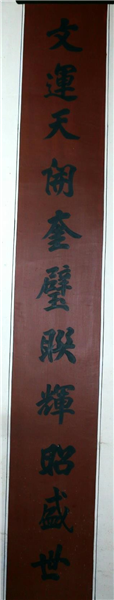 文運天開奎璧聯輝昭盛世